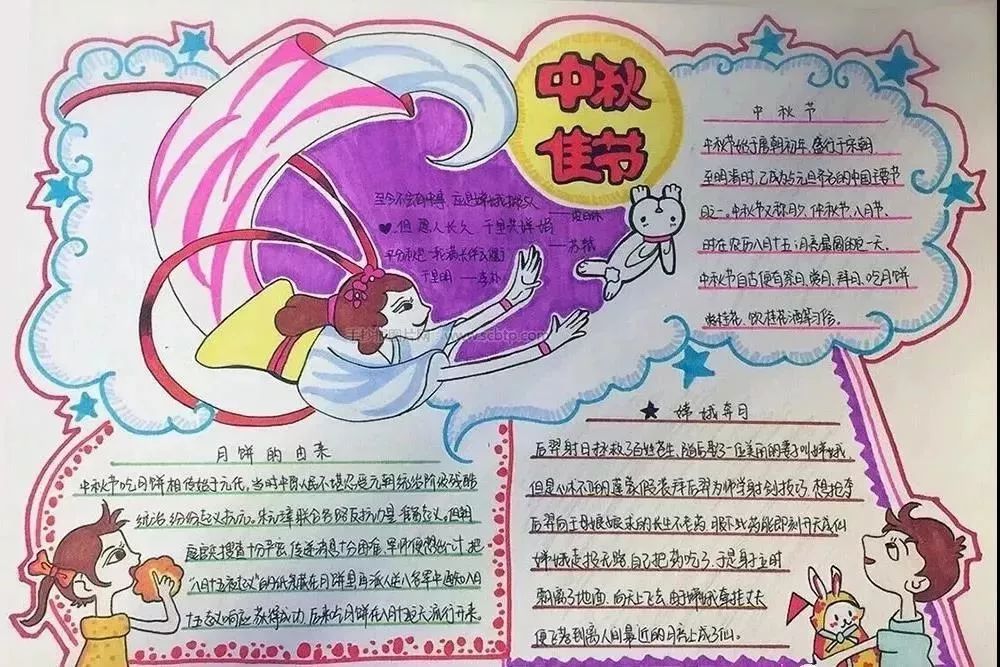 中秋
佳节
中秋节
中秋节始于唐朝初年，盛行于宋朝
至明清时，已成为与元旦齐名的中国主要节
日之一。中秋节又称月夕、仲秋节、八月节。
时在农历八月十五；月亮最圆的这一天。
中秋节自古便有祭月、赏月、拜月、吃月饼
赏桂花、饮桂花酒等习俗。
但愿人长久 千里共婵娟
——苏轼
平分秋色一轮满 长伴云衢
千里明 ——李朴
手抄报图片网 www.scbtp.com
嫦娥奔月
后羿射日拯救了百姓苍生，随后娶了一位美丽的妻子叫嫦娥
但是心术不正的蓬蒙假装拜后羿为师学射剑技巧，想抢夺
后羿向王母娘娘求的长生不老药 服下此药能即刻升天成仙
嫦娥走投无路 自己把药吃了，于是身立时
飘离了地面、向天上飞去，由于嫦娥牵挂丈夫
便飞落到离人间最近的月亮上成了仙。
月饼的由来
中秋节吃月饼相传始于元代，当时中原人民不堪忍受元朝统治阶级残酷
统治，纷纷起义抗元。朱元璋联合各路反抗力量准备起义。但朝
庭官兵搜查十分严密，传递消息十分困难，军师便想出一计，把
"八月十五夜起义"的纸条藏在月饼里再派人送入各军中通知八月
十五起义响应，获得成功，后来吃月饼在八月十五这天流行开来。